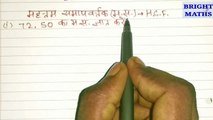 BRIGHT
MATHS
महत्तम समापवर्तक (म.स.) → H.C.F.
(1) 72, 50 का म.स. ज्ञात करें